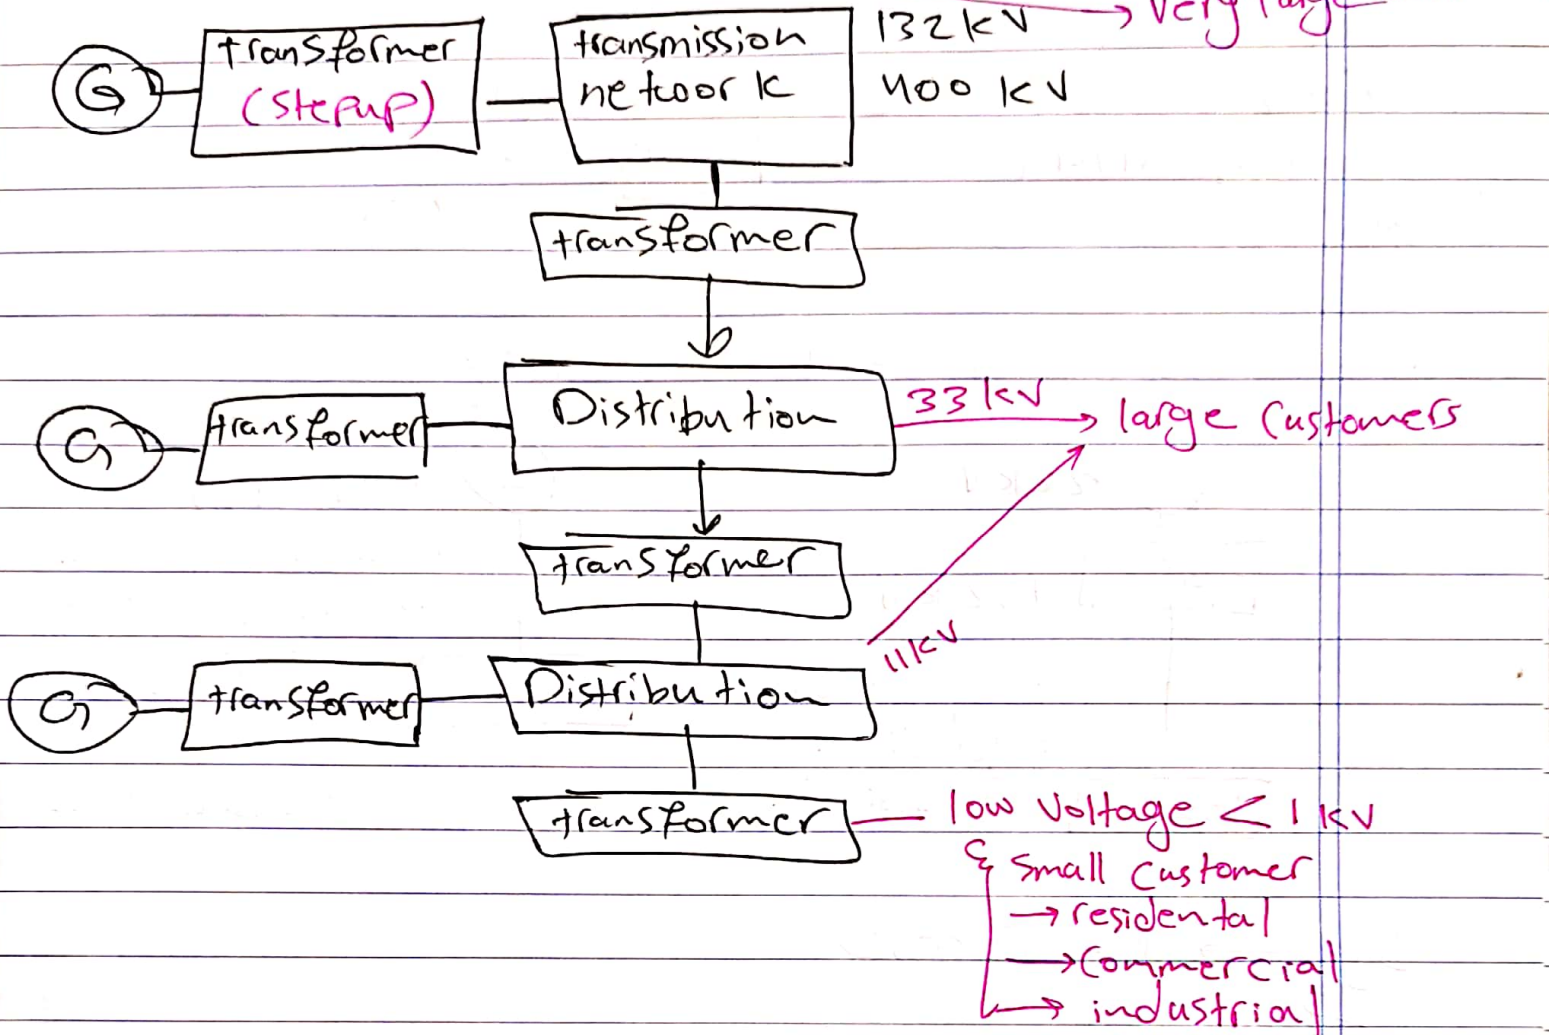 → Very large
G transformer transmission 132 kV
(step up) network 400 kV
transformer
G transformer Distribution 33 kV → large Customers
transformer
11 kV
G transformer Distribution
transformer low Voltage < 1 kV
Small Customer
→ residental
→ Commercial
→ industrial